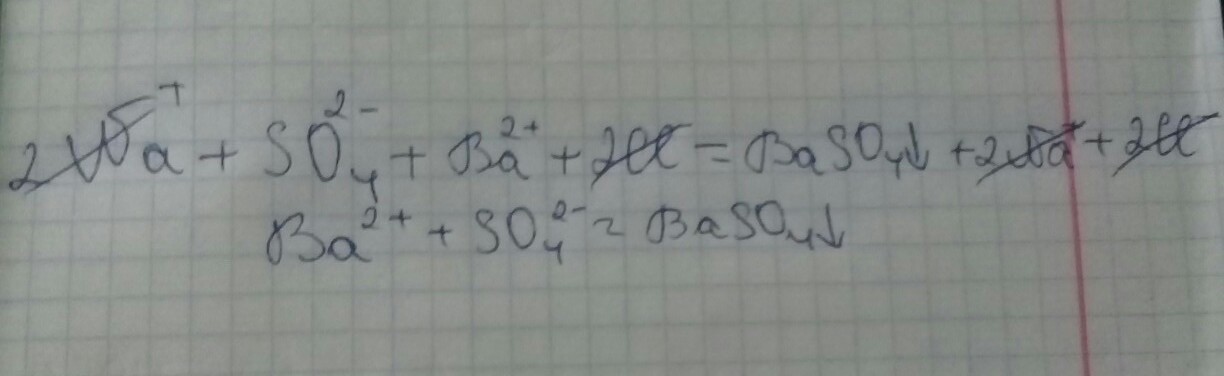 2Na⁺ + SO₄²⁻ + Ba²⁺ + 2Cl⁻ = BaSO₄↓ + 2Na⁺ + 2Cl⁻
Ba²⁺ + SO₄²⁻ = BaSO₄↓